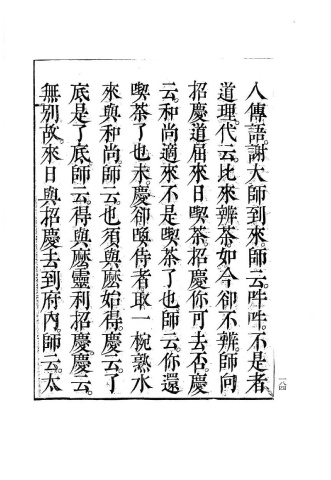 人傳語。謝大師到來。師云。吽吽。不是者
道理。代云。比來辨茶。如今卻不辨。師向
招慶道。屆來日喫茶。招慶你可去否。慶
云。和尚適來不是喫茶了也。師云。你還
喫茶了也未。慶卻喚侍者。取一椀熟水
來與和尚。師云。也須與麼始得。慶云。了
底是了底。師云。得與麼靈利。招慶。慶云。
無別故。來日與招慶去到府內。師云。太
一八四